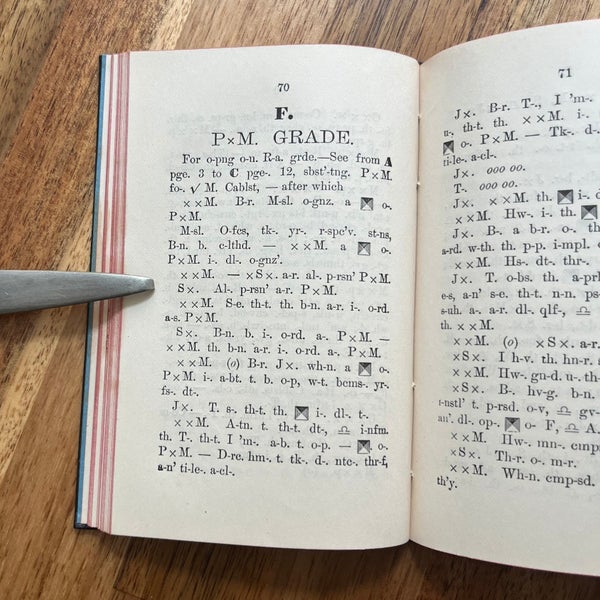 70
F.
P×M. GRADE.
For o-png o-n. R-a. grde.—See from A
pge. 3 to C pge-. 12, sbst'-tng. P×M.
fo-. √ M. Cablst, — after which
××M. B-r. M-sl. o-gnz. a o-
P×M.
M-sl. O-fcs, tk-. yr-. r-spc'v. st-ns,
B-n. b. c-lthd. — ××M. a o-.
P×M. i-. dl-. o-gnz'.
××M. — ×S×. a-r. al-. p-rsn' P×M.
S×. Al-. p-rsn' a-r. P×M.
××M. S-e. th-t. th. b-n. a-r. i-. o-rd.
a-s. P×M.
S×. B-n. b. i-. o-rd. a-. P×M. —
××M. th. b-n. a-r. i-. o-rd. a-. P×M.
××M. (o) B-r. J×. wh-n. a o-.
P×M. i-. a-bt. t. b. o-p, w-t. bcms-. yr-.
fs-. dt-.
J×. T. s-. th-t. th. i-. dl-. t-.
××M. A-tn. t. th-t. dt-, ♎ i-nfm.
th. T-. th-t. I 'm-. a-b. t. o-p. — o-.
P×M. — D-rc. hm-. t. tk-. d-. ntc-. thr-f,
a-n' ti-le-. a-cl-.
71
J×. B-r. T-., I 'm-.
u-. th-t. th. ××M. i-.
o-. P×M. — Tk-. d-.
ti-le-. a-cl-.
J×. 000 00.
T-. 000 00.
J×. ××M. th. i-. d
××M. Hw-. i-. th.
J×. B-. a b-r. o-. th
a-rd. w-th. p-p. i-mpl.
××M. Hs-. dt-. thr-.
J×. T. o-bs. th. a-prh
e-s, a-n' s-e. th-t. n-n. ps-
s-uh. a-. a-r. dl-. qlf-, ♎
th. ××M.
××M. (o) ×S×. a-r.
×S×. I h-v. th. hn-r.
××M. Hw-. gn-d. u-. th
×S×. B-. hv-g. b-n.
i-nstl' t. p-rsd. o-v, ♎ gv-
an'. dl-. op-. o- F, ♎ A.
××M. Hw-. mn-. cmp
×S×. Th-r. o. m-r.
××M. Wh-n. cmp-sd.
th'y.